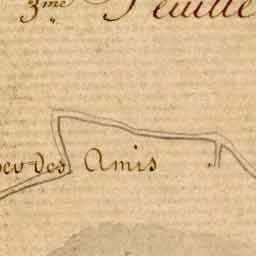 3me Feuille
des Amis